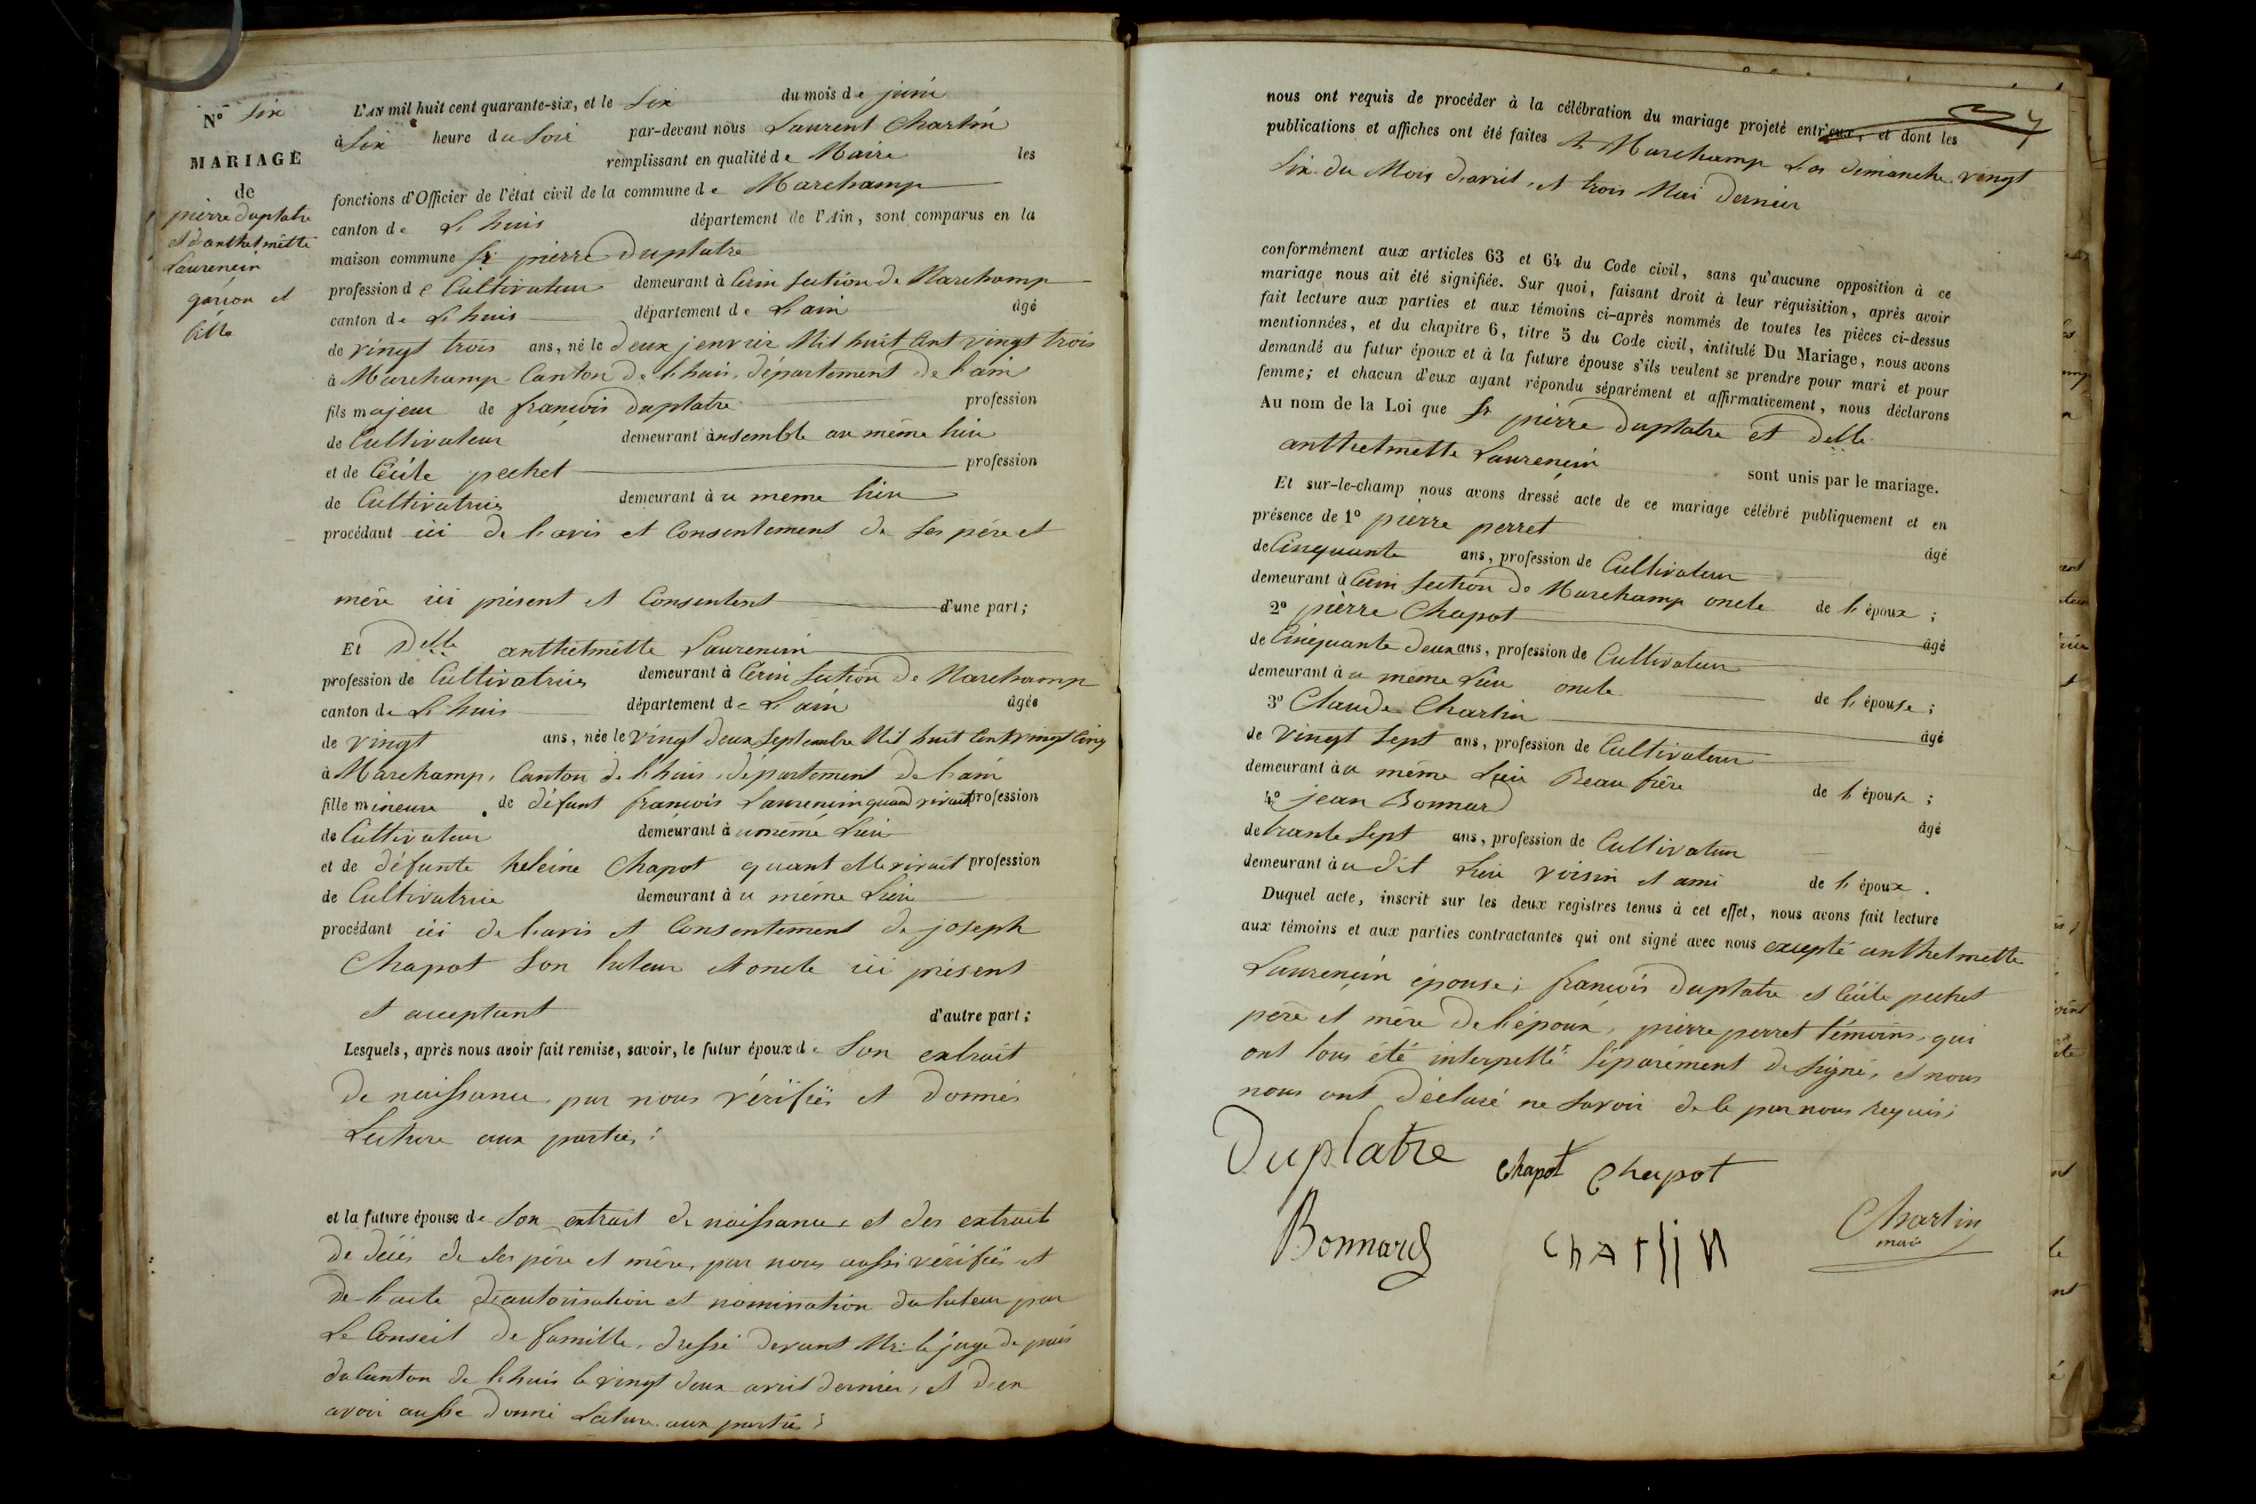 N° Six
MARIAGE
de
pierre duplatre
et d'anthelmette
Laurencin
garçon et
fille
L'AN mil huit cent quarante-six, et le Six du mois de juin
à Six heure du Soir par-devant nous Laurent Charlin
remplissant en qualité de Maire les
fonctions d'Officier de l'état civil de la commune de Marchamp
canton de Lhuis département de l'Ain, sont comparus en la
maison commune Sr pierre duplatre
profession de Cultivateur demeurant à Cerin Section de Marchamp
canton de Lhuis département de Lain âgé
de vingt trois ans, né le deux jenvier Mil huit Cent vingt trois
à Marchamp Canton de Lhuis, département de Lain
fils majeur de françois duplatre profession
de Cultivateur demeurant ansemble au même lieu
et de Cécile pechet profession
de Cultivatrice demeurant à u meme lieu
procédant ici de l'avis et Consentement de Ses père et
mère ici présent et Consentent d'une part;
Et Delle anthelmette Laurencin
profession de Cultivatrice demeurant à Cérin Section de Marchamp
canton de Lhuis département de Lain âgée
de vingt ans, née le vingt deux Septembre Mil huit Cent vingt Cinq
à Marchamp, Canton de Lhuis, département de Lain
fille mineure de défunt françois Laurencin quand vivait profession
de Cultivateur demeurant à u même Lieu
et de défunte heleine Chapot quant elle vivait profession
de Cultivatrice demeurant à u même Lieu
procédant ici de l'avis et Consentement de joseph
Chapot Son tuteur et oncle ici présent
et acceptant d'autre part;
Lesquels, après nous avoir fait remise, savoir, le futur époux de Son extrait
de naissance par nous vérifiés et donnés
Lecture aux parties;
et la future épouse de Son extrait de naissance et des extraits
de décès de Ses père et mère, par nous aussi vérifiés et
de l'acte d'autorisation et nomination du tuteur par
Le Conseil de famille, dressé devant Mr le juge de paix
du Canton de Lhuis le vingt deux avril dernier, et d'en
avoir aussi donné Lecture aux parties;
nous ont requis de procéder à la célébration du mariage projeté entr'eux, et dont les
publications et affiches ont été faites A Marchamp Les dimanche vingt
Six du Mois d'avril, et trois Mai dernier
conformément aux articles 63 et 64 du Code civil, sans qu'aucune opposition à ce
mariage nous ait été signifiée. Sur quoi, faisant droit à leur réquisition, après avoir
fait lecture aux parties et aux témoins ci-après nommés de toutes les pièces ci-dessus
mentionnées, et du chapitre 6, titre 5 du Code civil, intitulé Du Mariage, nous avons
demandé au futur époux et à la future épouse s'ils veulent se prendre pour mari et pour
femme; et chacun d'eux ayant répondu séparément et affirmativement, nous déclarons
Au nom de la Loi que Sr pierre duplatre et delle
anthelmette Laurençin sont unis par le mariage.
Et sur-le-champ nous avons dressé acte de ce mariage célébré publiquement et en
présence de 1° pierre perret âgé
de Cinquante ans, profession de Cultivateur
demeurant à Cerin Section de Marchamp oncle de l'époux;
2° pierre Chapot âgé
de Cinquante deux ans, profession de Cultivateur
demeurant à u même Lieu oncle de l'épouse;
3° Claude Charlin âgé
de vingt Sept ans, profession de Cultivateur
demeurant à u même Lieu Beau frère de l'épouse;
4° jean Bonnard âgé
de trante Sept ans, profession de Cultivateur
demeurant à u dit Lieu voisin et ami de l'époux.
Duquel acte, inscrit sur les deux registres tenus à cet effet, nous avons fait lecture
aux témoins et aux parties contractantes qui ont signé avec nous excepté anthelmette
Laurençin épouse; françois duplatre et Cécile pechet
père et mère de l'époux, pierre perret témoins, qui
ont tous été interpellé Séparément de Signé, et nous
nous ont déclaré ne Savoir de ce par nous requis;
Duplatre Chapot Chapot
Bonnard ChArlin Charlin
maire